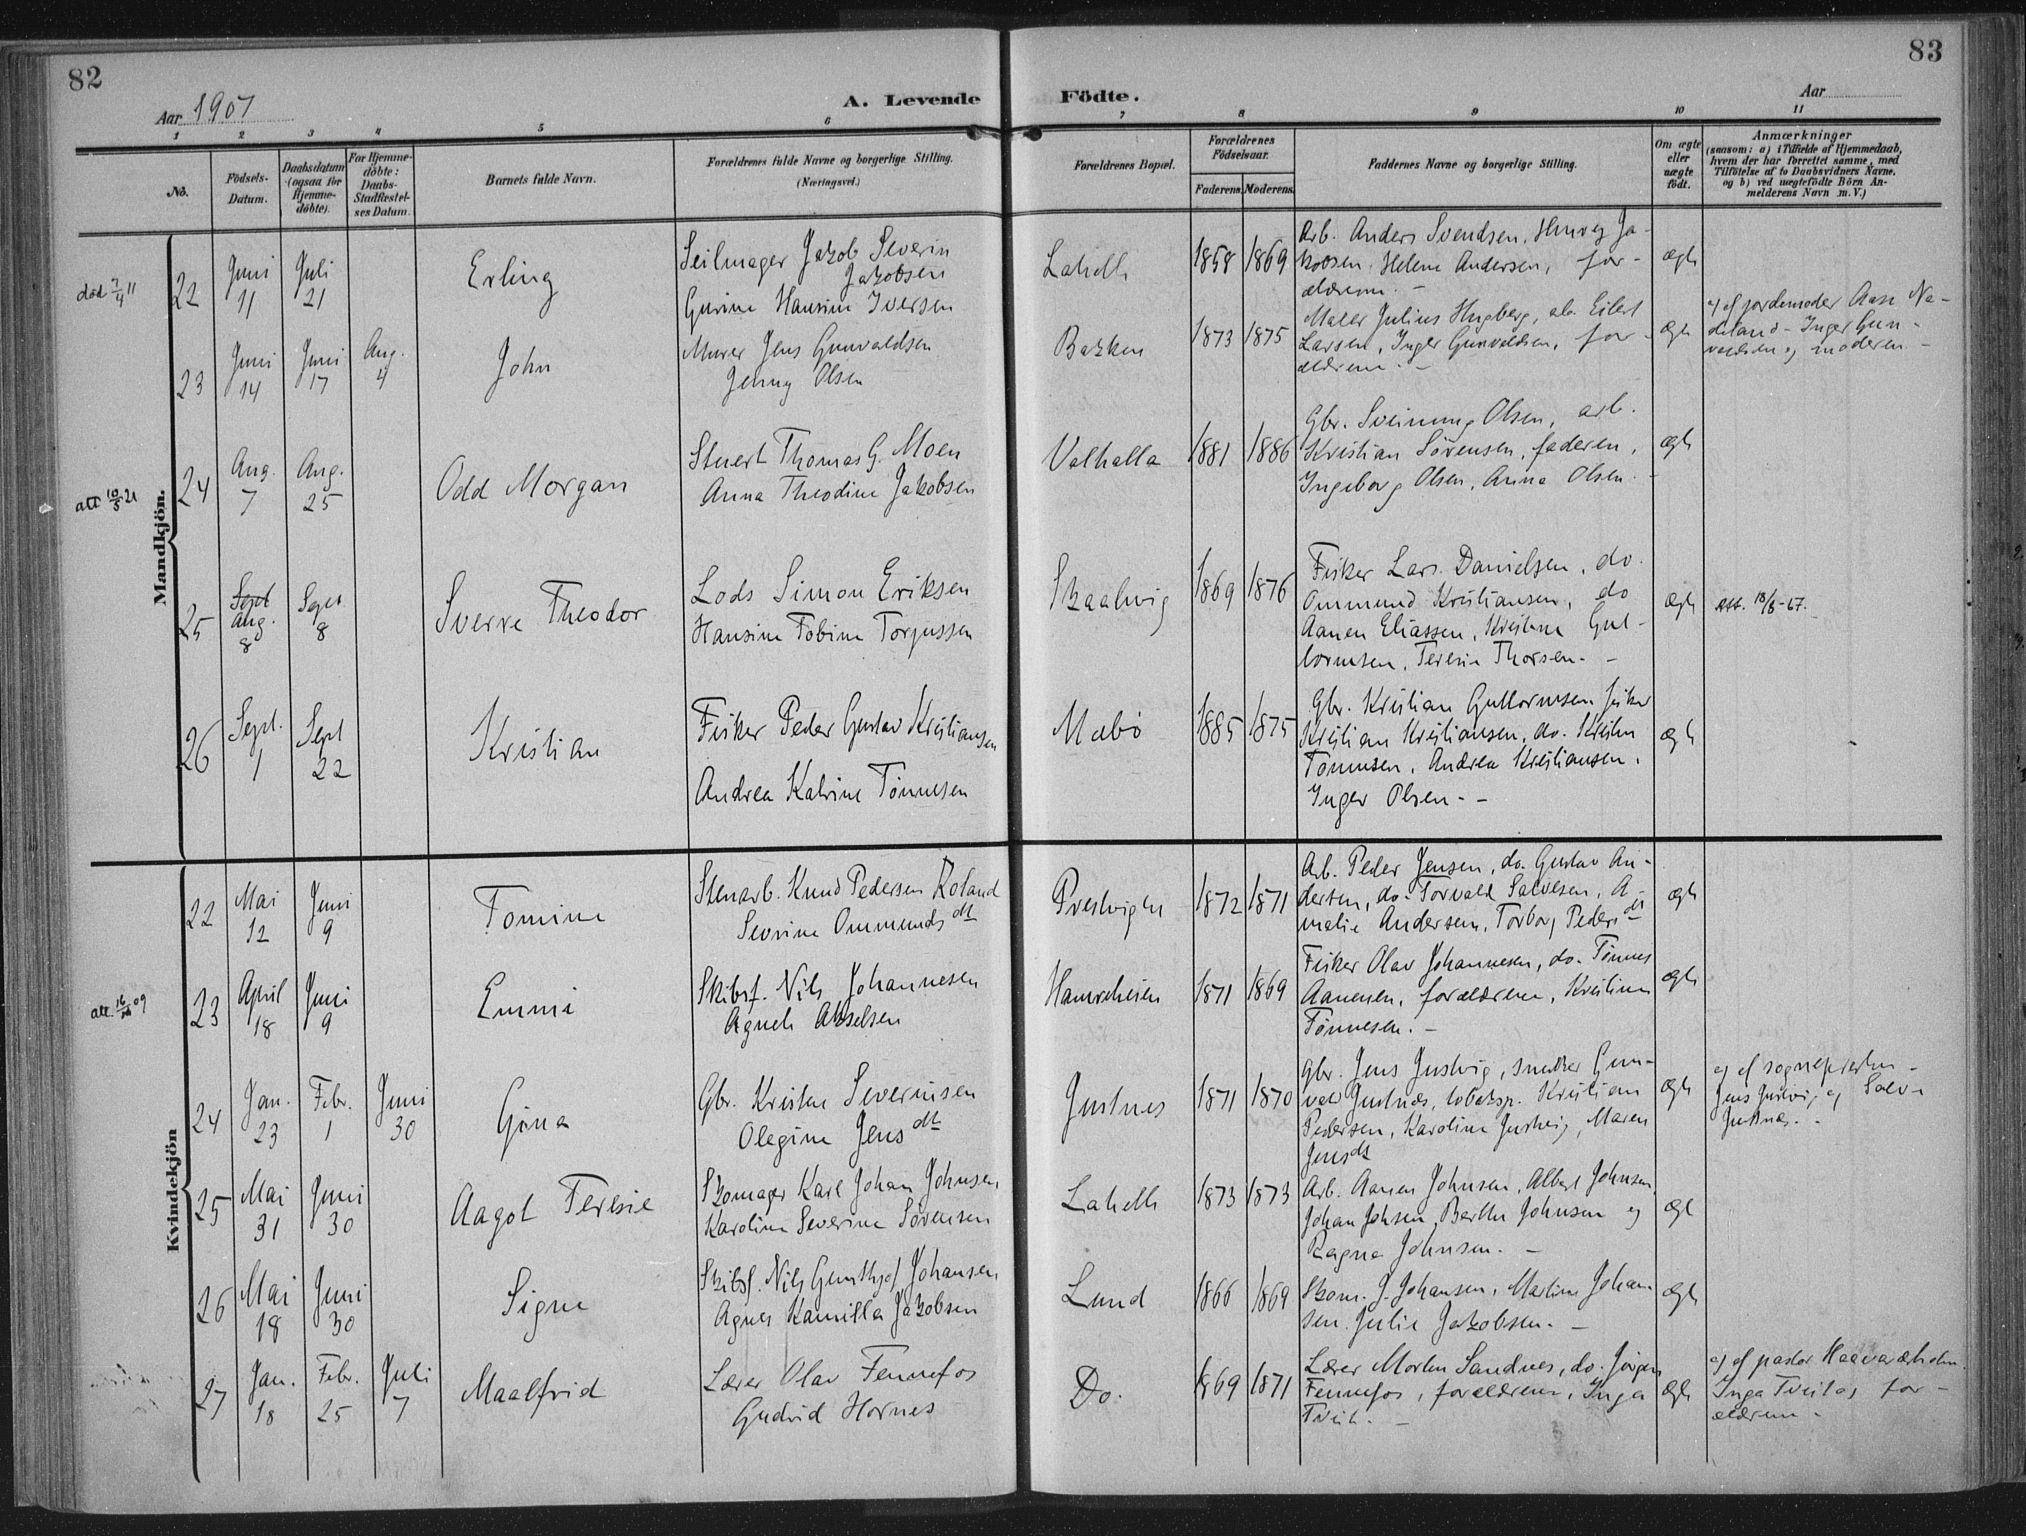 82
83
Aar 1907
A. Levende Födte.
Aar
1 2 3 4 5 6 7 8 9 10 11
No.
Födsels-Datum.
Daabsdatum (ogsaa för Hjemme-döbte).
For Hjemme-döbte: Daabs-Stadfæstel-ses Datum.
Barnets fulde Navn.
Forældrenes fulde Navne og borgerlige Stilling.
(Næringsvei.)
Forældrenes Bopæl.
Forældrenes Födselsaar.
Faderens. Moderens.
Faddernes Navne og borgerlige Stilling.
Om ægte eller uægte födt.
Anmærkninger
(saasom: a) i Tilfælde af Hjemmedaab,
hvem der har forrettet samme, med
Tilföielse af to Daabsvidners Navne,
og b) ved uægtefödte Börn An-
melderens Navn m. V.)
Mandkjön.
død 7/4 11
22 Juni 11 Juli 21 Erling
Seilmager Jakob Severin
Jakobsen
Gurine Hansine Iversen
Lahelle 1858 1869
Arb. Anders Svendsen, Ja-
kobsen, Helene Andersen, for-
ældrene. -
ægte
23 Juni 14 Juni 17 Aug. 4 John
Murer Jens Gunvaldsen
Jenny Olsen
Bakken 1873 1875
Maler Julius Hugberg, do. Eilert
Larsen, Inger Gunvaldsen, for-
ældrene. -
ægte
a) af jordemoder Aase Na-
deland - Inger Gun-
valdsen og moderen -
att 10/5 21
24 Aug. 7 Aug. 25 Odd Morgan
Stuert Thomas G. Moen
Anna Theodine Jakobsen
Valhalla 1881 1886
Gbr. Sveinung Olsen, arb.
Kristian Sørensen, faderen,
Ingeborg Olsen, Anna Olsen. -
ægte
25 Sept Aug. 8 Sept 8 Sverre Theodor
Lods Simon Eriksen
Hansine Tobine Torjussen
Skaalevig 1869 1876
Fisker Lars Danielsen, do.
Ommund Kristiansen, do
Aanen Eliassen, Kristine Gut-
tormsen, Teresie Thorsen. -
ægte
att. 18/8-67.
26 Sept. 1 Sept 22 Kristian
Fisker Peder Gustav Kristiansen
Andrea Katrine Tønnesen
Mæbø 1885 1875
Gbr. Kristian Guttormsen, fisker
Kristian Kristiansen, do. Kristen
Tønnesen, Andrea Kristiansen,
Inger Olsen. -
ægte
Kvindekjön
22 Mai 12 Juni 9 Tomine
Stenarb. Knud Pedersen Roland
Sevrine Ommundsdtt
Prestvigen 1872 1871
Arb. Peder Jensen, do. Gustav An-
dersen, do. Torvald Salvesen, A-
malie Andersen, Torborg Pedersdtt
ægte
att. 16/10 09
23 April 18 Juni 9 Emmi
Skibsf. Nils Johannesen
Agnete Akselsen
Hamreheien 1871 1869
Fisker Olav Johannesen, do. Tønnes
Aanensen, forældrene, Kristine
Tønnesen. -
ægte
24 Jan. 23 Febr. 1 Juni 30 Gina
Gbr. Kristen Severinsen
Olegine Jensdtt
Justnes 1871 1870
Gbr. Jens Justvig, snedker Gun-
vald Justnæs, tobaksp. Kristian
Pedersen, Karoline Justvig, Maren
Jensdt
ægte
a) af sognepresten -
Jens Justvig og Salve
Justnæs. -
25 Mai 31 Juni 30 Aagot Teresie
Skomager Karl Johan Johnsen,
Karoline Severine Sørensen
Lahelle 1873 1873
Arb. Aanen Johnsen, Albert Johnsen,
Johan Johsen, Berthe Johnsen og
Ragna Johnsen. -
ægt
26 Mai 18 Juni 30 Signe
Skibsf. Nils Johansen,
Agnes Kamilla Jakobsen
Lund 1866 1869
Skom. J. Johansen, Martine Johan-
sen, Julie Jakobsen. -
ægte
27 Jan. 18 Febr. 25 Juli 7 Maalfrid
Lærer Olav Fennefos
Gudrid Hornes
Do. 1869 1871
Lærer Morten Sandnes, do. Jörgen
Fennefos, forældrene, Inga
Tveit. -
ægte
a) af pastor Haavardsholm.
Inga Tveit og for-
ældrene -